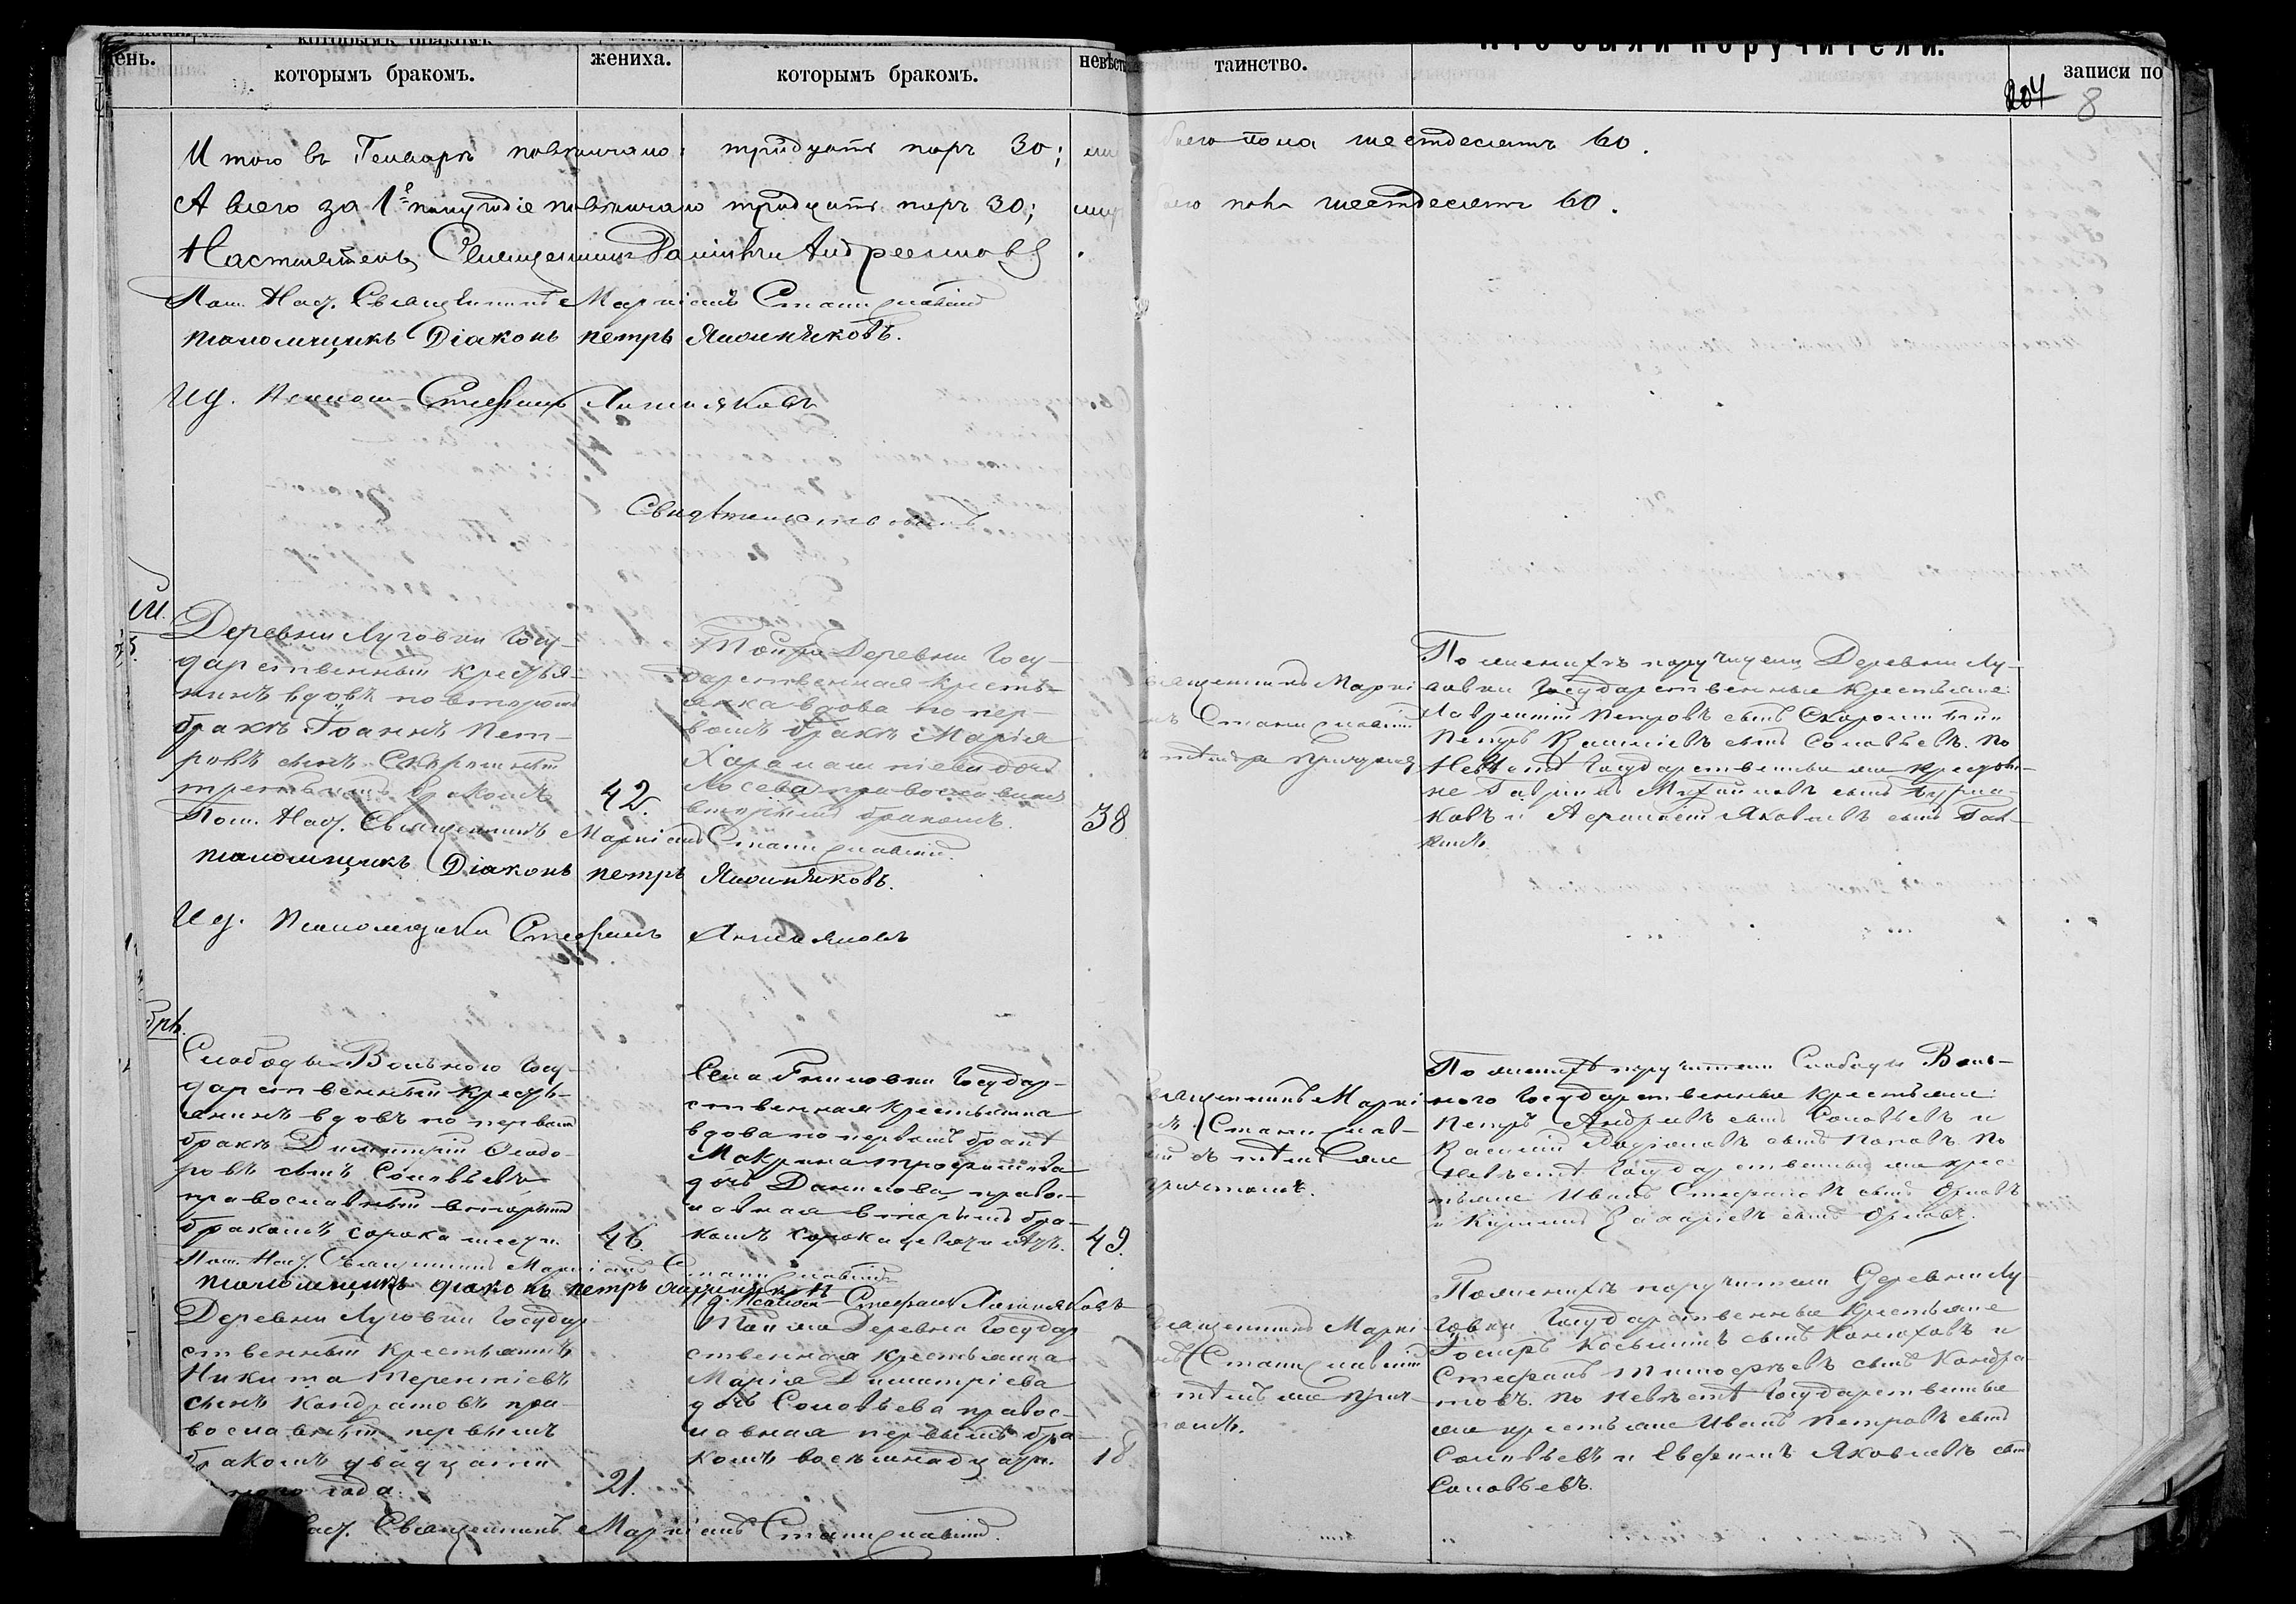 день.
которымъ бракомъ.
жениха.
которымъ бракомъ.
невѣсты
таинство.
что были поручители.
записи по
204
8
Итого въ Генварѣ повѣнчано: тридцать паръ 30;
обоего пола шестдесятъ 60.
А всего за 1е полугодіе повѣнчано тридцать паръ 30;
пола шестдесятъ 60.
Настоятель, Священникъ
Пом. Наст. Священникъ Маркіанъ Станиславскій
псаломщикъ Діаконъ петръ
Ид. Псалом. Стефанъ
Свидѣтельствовалъ
Деревни Луговки Госу-
дарственный крестья-
нинъ вдовъ по второмъ
бракѣ Іоаннъ Пет-
ровъ сынъ
третьимъ бракомъ
42.
Тойже Деревни Госу-
дарственная кресть-
янка вдова по пер-
вомъ бракѣ Марія
дочь
Лосева православная
вторымъ бракомъ.
38
Священникъ Маркі-
Станиславскій
По женихѣ поручители Деревни Лу-
говки Государственные крестьяне:
Лаврентій Петровъ сынъ
Петръ сынъ Соловьевъ. По
Невѣстѣ Государственные же крестья-
не Гавріилъ Михайловъ сынъ
ковъ и Яковлевъ сынъ
Пом. Наст. Священникъ Маркіанъ Станиславскій.
псаломщикъ Діаконъ петръ
Ид. Псаломщика Стефанъ
брь.
Слободы Вольного Госу-
дарственный кресть-
янинъ вдовъ по первомъ
бракѣ Димитрій Ѳеодо-
ровъ сынъ Соловьевъ
православный вторымъ
бракомъ сорока шести.
46.
Села Гниловки Государ-
ственная крестьянка
вдова по первомъ бракѣ
Макрина Трофимова
дочь Данилова, правос-
лавная вторымъ бра-
комъ сорока девяти лѣтъ.
49.
Священникъ Маркі-
нъ Станислав-
скій съ тѣмъ же
причтомъ.
По женихѣ поручители Слободы Воль-
ного Государственные крестьяне:
Петръ Андреевъ сынъ Соловьевъ и
Василій Родіоновъ сынъ Поповъ. По
Невѣстѣ Государственные же крес-
тьяне Иванъ Стефановъ сынъ Орловъ
и Захаріевъ сынъ Орловъ.
Пом. Наст. Священникъ Маркіанъ Станиславскій
псаломщикъ діаконъ петръ
Ид. Псалом. Стефанъ
Деревни Луговки Государ-
ственный крестьянинъ
Никита Терентіевъ
сынъ Кондратовъ пра-
вославный первымъ
бракомъ двадцати
года.
21.
Той же Деревни Государ-
ственная крестьянка
Марія Димитріева
дочь Соловьева правос-
лавная первымъ бра-
комъ восемнадцати.
18
Священникъ Маркі-
нъ Станиславскій
съ тѣмъ же прич-
томъ.
По женихѣ поручители Деревни Лу-
говки Государственные крестьяне
Косьминъ сынъ Конюховъ и
Стефанъ Тимофѣевъ сынъ Кондра-
товъ. По Невѣстѣ Государственные
же крестьяне Иванъ Петровъ сынъ
Соловьевъ и Евфимъ Яковлевъ сынъ
Соловьевъ.
Наст. Священникъ Маркіанъ Станиславскій.